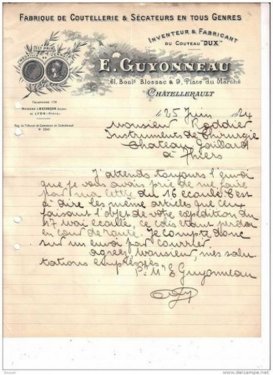 FABRIQUE DE COUTELLERIE & SÉCATEURS EN TOUS GENRES
INVENTEUR & FABRICANT
DU COUTEAU "DUX"
E. GUYONNEAU
61, Boulᵈ Blossac & 9, Place du Marché
CHÂTELLERAULT
TÉLÉPHONE
25 Juin 24
Monsieur
Instruments de Chirurgie
Château Gaillard
à Thiers
J'attends toujours l'envoi
que je vous avais prié de me faire
du 16 écoulé c'est
à dire les même articles que ceux
faisant l'objet de votre expédition du
17 mai écoulé, ce colis étant perdu
en cour de route. Je compte donc
sur un envoi par courrier
agréez, monsieur, mes salu
tations empressées.
E Guyonneau